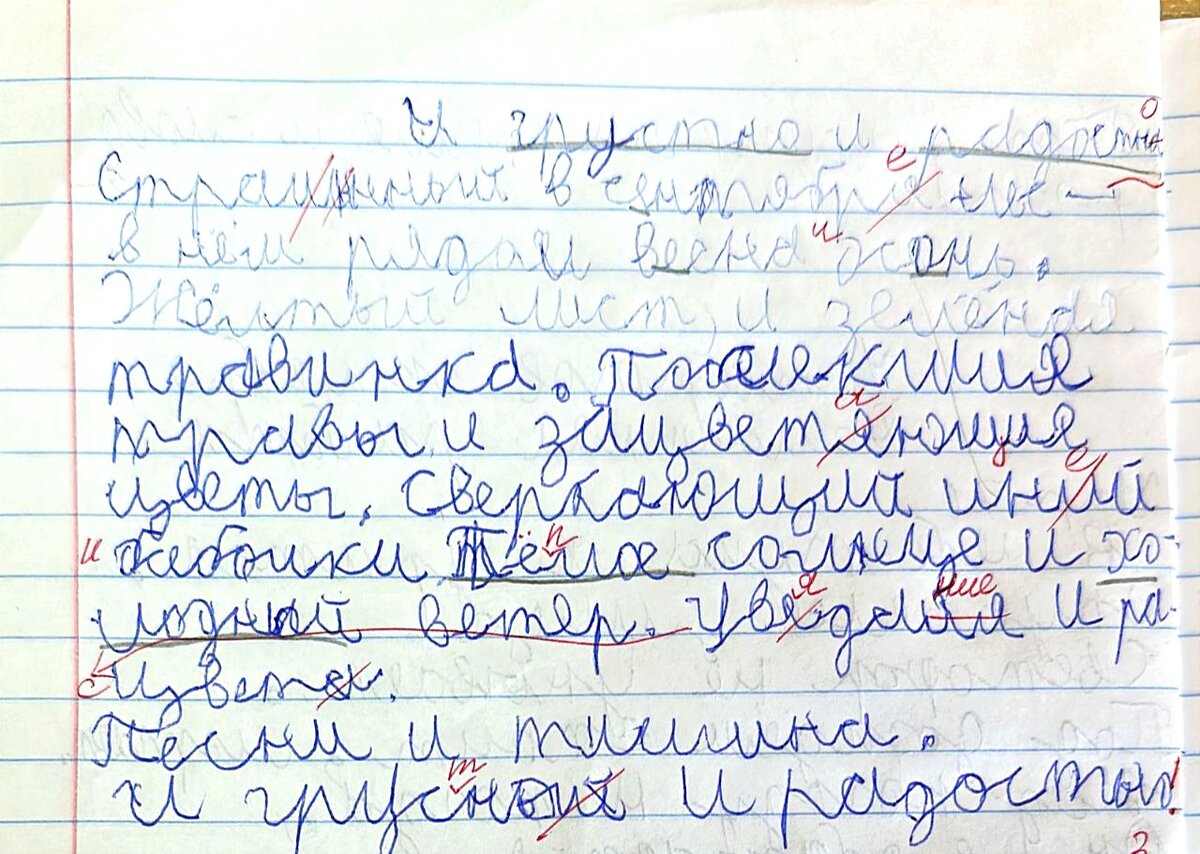 И грустно и радостна
Странный в сентябре лес —
в нём рядом весна и осень.
Жёлтый лист и зелёная
травинка. Поблекшие
травы и зацветающие
цветы. Сверкающий иней
и бабочки. Тёплое солнце и хо-
лодный ветер. Увядание и ра-
сцвет.
Песни и тишина.
И грустно и радостно!